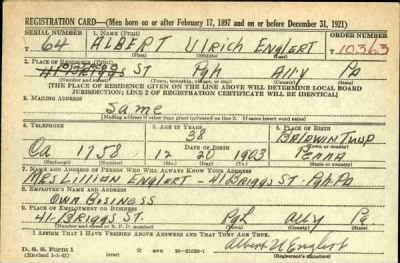 REGISTRATION CARD—(Men born on or after February 17, 1897 and on or before December 31, 1921)
SERIAL NUMBER 1. NAME (Print) ORDER NUMBER
T 64 ALBERT Ulrich Englert T 10,363
(First) (Middle) (Last)
2. PLACE OF RESIDENCE (Print)
41 BRIGGS ST Pgh Ally Pa
(Number and street) (Town, township, village, or city) (County) (State)
[THE PLACE OF RESIDENCE GIVEN ON THE LINE ABOVE WILL DETERMINE LOCAL BOARD
JURISDICTION; LINE 2 OF REGISTRATION CERTIFICATE WILL BE IDENTICAL]
3. MAILING ADDRESS
Same
[Mailing address if other than place indicated on line 2. If same insert word same]
4. TELEPHONE 5. AGE IN YEARS 6. PLACE OF BIRTH
38 BALDWIN TWP
DATE OF BIRTH (Town or county)
Oa 1758 12 20 1903 Penna
(Exchange) (Number) (Mo.) (Day) (Yr.) (State or country)
7. NAME AND ADDRESS OF PERSON WHO WILL ALWAYS KNOW YOUR ADDRESS
MRS Lillion Englert - 41 Briggs ST. Pgh. Pa
8. EMPLOYER'S NAME AND ADDRESS
Own Business
9. PLACE OF EMPLOYMENT OR BUSINESS
41 BRIGGS ST. Pgh Ally Pa
(Number and street or R. F. D. number) (Town) (County) (State)
I AFFIRM THAT I HAVE VERIFIED ABOVE ANSWERS AND THAT THEY ARE TRUE.
D. S. S. Form 1 GPO 16—21630-1 Albert U Englert
(Revised 1-1-42) (Registrant's signature)